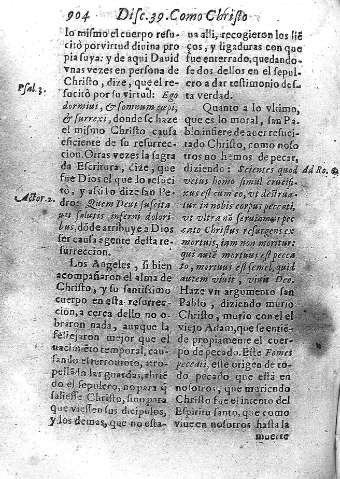 904 Disc. 39. Como Christo
lo mismo el cuerpo resu-
citò por virtud divina pro
pia suya: y de aqui David
vnas vezes en persona de
Christo, dize, que el re-
Psal. 3.
sucitò por su virtud: Ego
dormius, & somnum cæpi,
& surrexi, donde se haze
el mismo Christo causa
eficiente de su resurrec-
cion. Otras vezes la sagra
da Escritura, dize, que
fue Dios el que lo resuci-
tò, y assi lo dize san Pe-
Actor. 2.
dro: Quem Deus suscita
vit solutis inferni dolori
bus, dõde atribuye a Dios
ser causa agente desta re-
surreccion.
Los Angeles, si bien
acompañaron el alma de
Christo, y su santissimo
cuerpo en esta resurrec-
cion, a cerca dello no o-
braron nada, aunque la
festejaron mejor que el
nacimiẽto temporal, cau-
sando el terromoto, atro-
pellãdo las guardas, abriẽ
do el sepulcro, no para q̃
saliesse Christo, sino para
que viessen sus dicipulos,
y los demas, que no esta-
ua alli, recogieron los liẽ
ços, y ligaduras con que
fue enterrado, quedando-
se dos dellos en el sepul-
cro a dar testimonio des-
ta verdad.
Quanto a lo vltimo,
que es lo moral, san Pa-
blo infiere de aver resuci-
tado Christo, como noso
tros no hemos de pecar,
diziendo: Scientes quod
Ad Ro. 6.
vetus homo simul crucifi-
xus est cum eo, vt destrua
tur in nobis corpus peccati,
vt vltra nõ serviamus pec
cato Christus resurgens ex
mortuis, iam non moritur:
qui autẽ mortuus est pecca
to, mortuus est semel, quid
autem vivit, vivit Deo.
Haze vn argumento san
Pablo, diziendo murio
Christo, murio con el el
viejo Adam, que se entiẽ-
de propiamente el cuer-
po de pecado. Este Fomes
peccati, este origen de to-
do pecado que està en
nosotros, que muriendo
Christo fue el intento del
Espiritu santo, que como
viue en nosotros hasta la
muerte